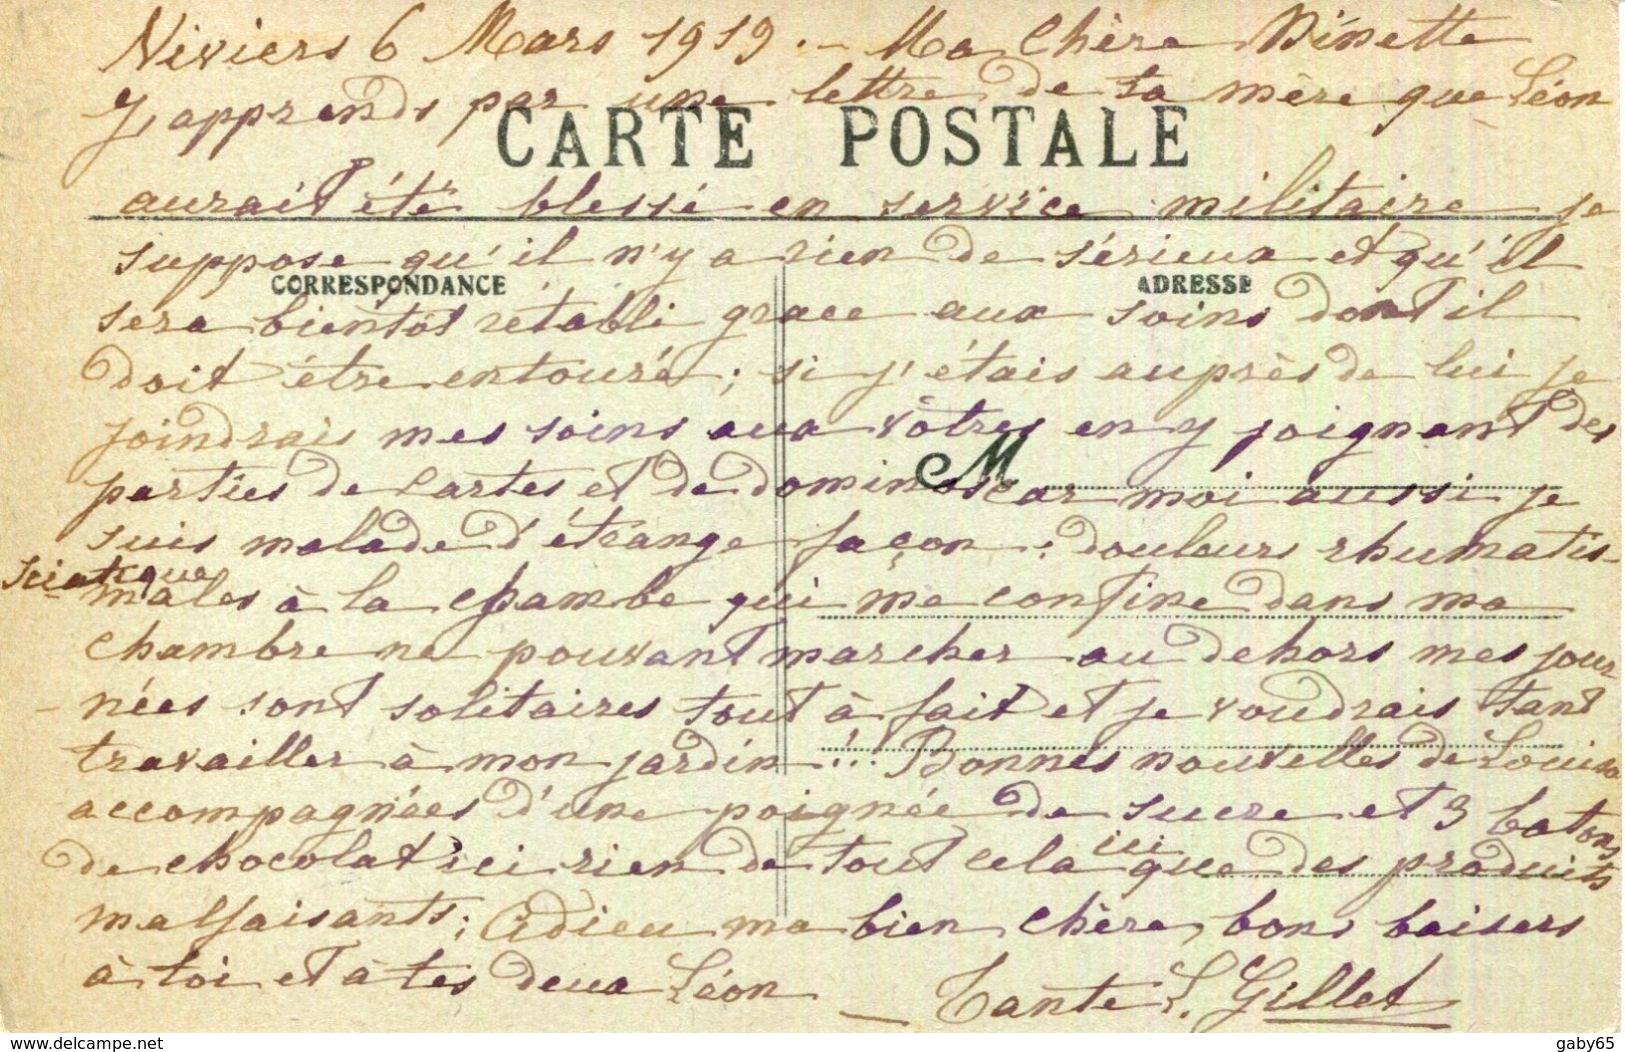 Viviers 6 Mars 1919. - Ma Chère Ninette
J'apprends par une lettre de ta mère que Léon
CARTE POSTALE
aurait été blessé en service militaire je
suppose qu'il n'y a rien de sérieux et qu'il
CORRESPONDANCE ADRESSE
sera bientôt rétabli grace aux soins dont il
doit être entouré; si j'étais auprès de lui je
joindrais mes soins aux vôtres en y joignant des
M
parties de cartes et de dominos car moi aussi je
suis malade d'étrange façon : douleurs rhumatis-
sciatique
males à la jambe qui me confine dans ma
chambre ne pouvant marcher au dehors mes jour
nées sont solitaires tout à fait et je voudrais tant
travailler à mon jardin !!! Bonnes nouvelles de Louisa
accompagnées d'une poignée de sucre et 3 batons
de chocolat ici rien de tout cela ici que des produits
malfaisants; Adieu ma bien chère, bons baisers
à toi et à tes deux Léon
— Tante L. Gillet
delcampe.net
gaby65